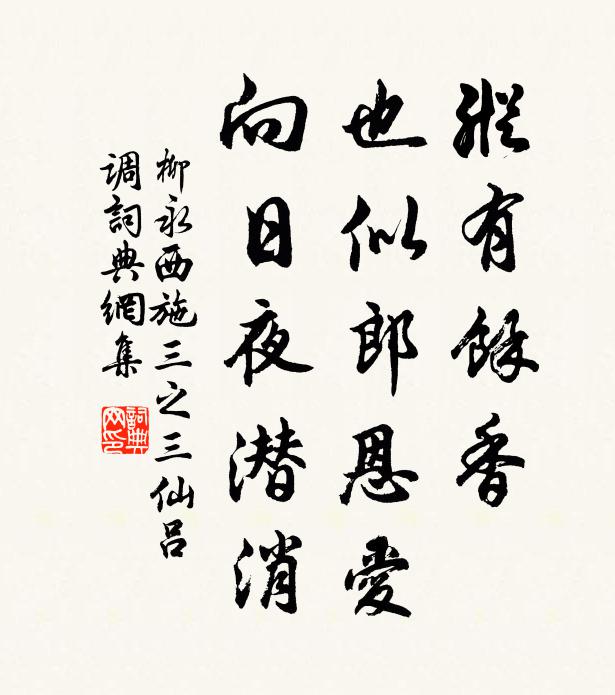 縱有餘香
也似郎恩愛
向日夜潜消
柳永西施三之三仙吕
调詞典網集
詞典网印